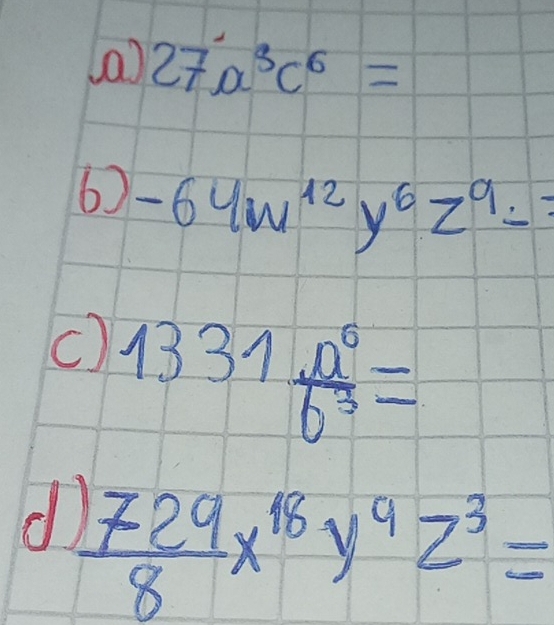 a) 27a³c⁶ =
b) -64w¹²y⁶z⁹ =
c) 1331 a⁶/b³ =
d) 729/8 x¹⁸y⁹z³ =